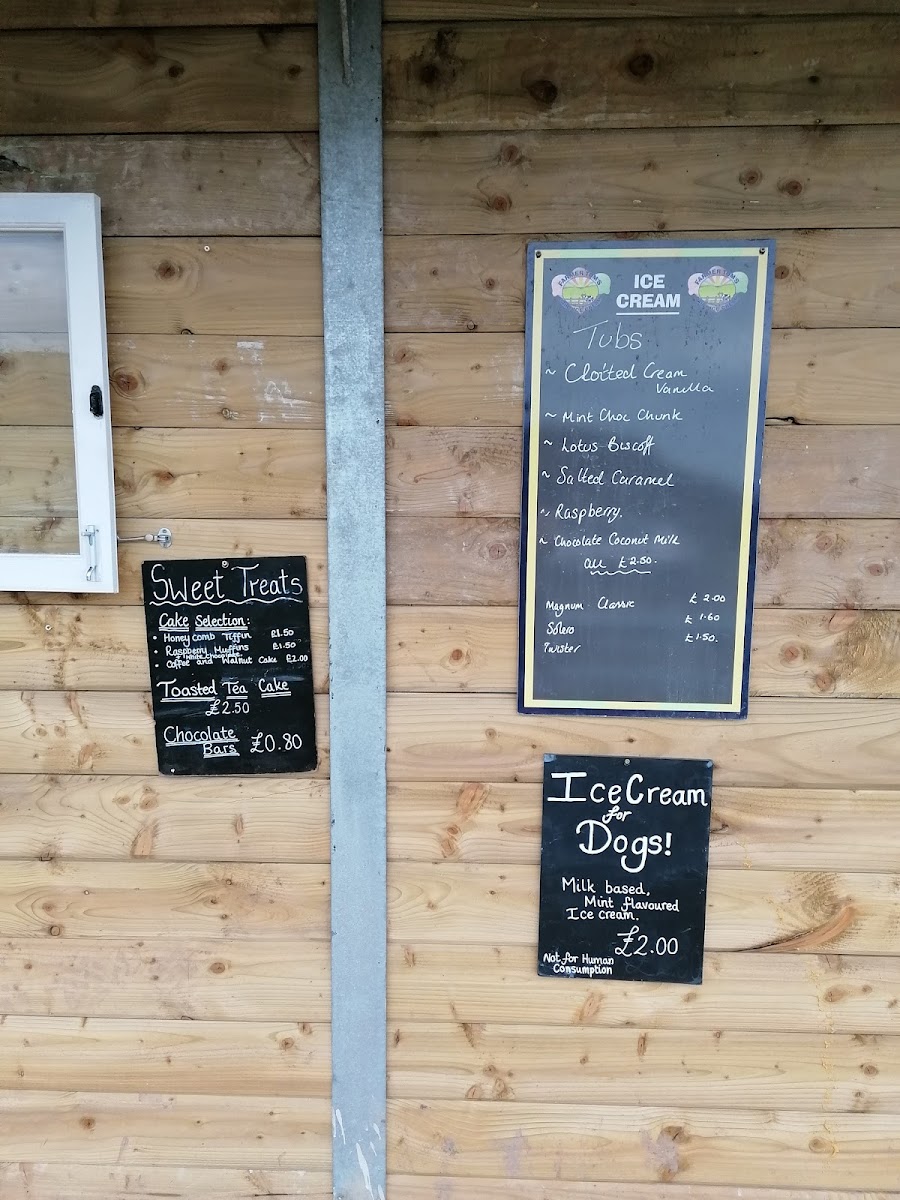 Sweet Treats
Cake Selection:
• Honeycomb Tiffin £1.50
• Raspberry Muffins £1.50
+ White Chocolate
• Coffee and Walnut Cake £2.00
Toasted Tea Cake
£2.50
Chocolate
Bars £0.80
FARMER TOMS
ICE
CREAM
FARMER TOMS
Tubs
~ Clotted Cream
Vanilla
~ Mint Choc Chunk
~ Lotus Biscoff
~ Salted Caramel
~ Raspberry.
~ Chocolate Coconut Milk
all £2.50.
Magnum Classic £2.00
Solero £1.60
Twister £1.50.
Ice Cream
for
Dogs!
Milk based,
Mint flavoured
Ice cream.
£2.00
Not for Human
Consumption